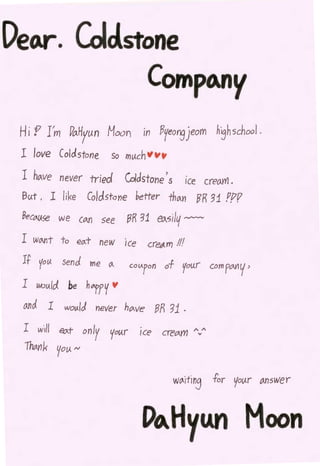 Dear. Coldstone
Company
Hi! I'm DaHyun Moon in Byeongjeom highschool.
I love Coldstone so much♥♥♥
I have never tried Coldstone's ice cream.
But, I like Coldstone better than BR 31 !!!
Because we can see BR 31 easily~~
I want to eat new ice cream !!!
If you send me a coupon of your company,
I would be happy ♥
and I would never have BR 31.
I will eat only your ice cream ^^
Thank you~
waiting for your answer
DaHyun Moon